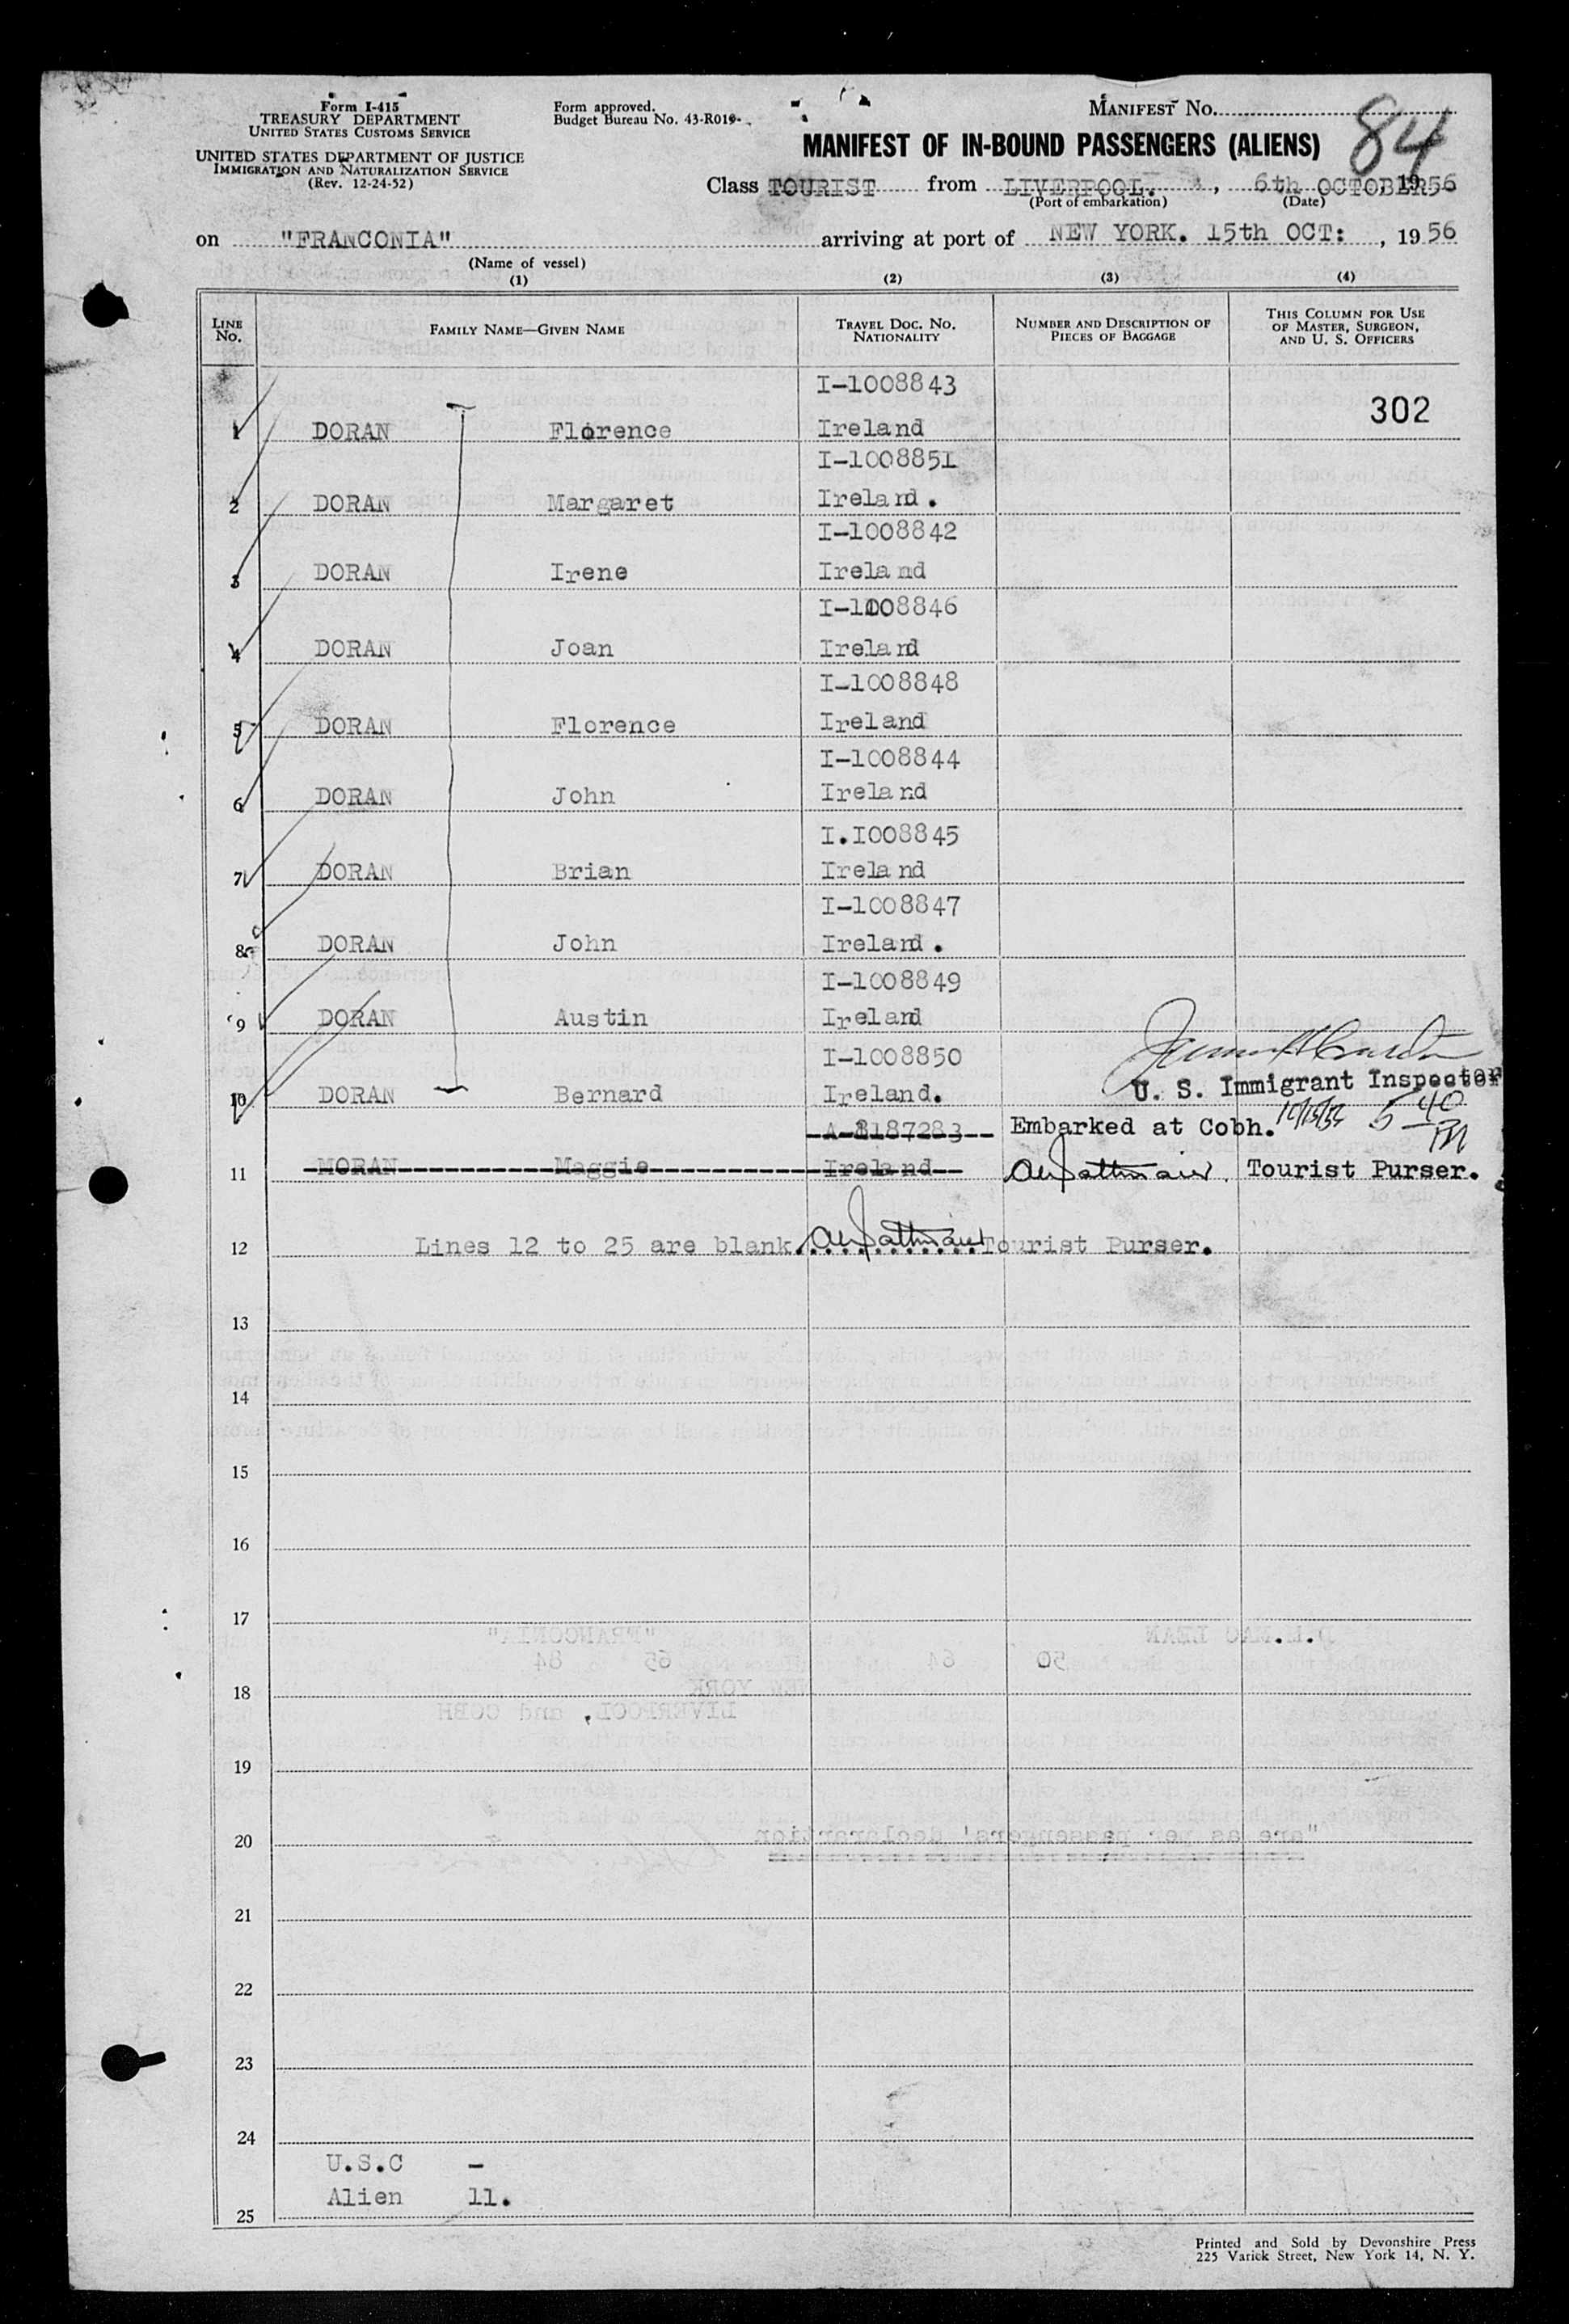 Form I-415
TREASURY DEPARTMENT
UNITED STATES CUSTOMS SERVICE
UNITED STATES DEPARTMENT OF JUSTICE
IMMIGRATION AND NATURALIZATION SERVICE
(Rev. 12-24-52)
Form approved.
Budget Bureau No. 43-R019-
MANIFEST No.
84
MANIFEST OF IN-BOUND PASSENGERS (ALIENS)
Class TOURIST from LIVERPOOL. , 6th OCTOBER 1956
(Port of embarkation) (Date)
on "FRANCONIA" arriving at port of NEW YORK. 15th OCT: , 1956
(Name of vessel)
(1) (2) (3) (4)
LINE No. FAMILY NAME—GIVEN NAME TRAVEL DOC. No. NATIONALITY NUMBER AND DESCRIPTION OF PIECES OF BAGGAGE THIS COLUMN FOR USE OF MASTER, SURGEON, AND U. S. OFFICERS
I-1008843
302
1 DORAN Florence Ireland
I-1008851
2 DORAN Margaret Ireland.
I-1008842
3 DORAN Irene Ireland
I-1008846
4 DORAN Joan Ireland
I-1008848
5 DORAN Florence Ireland
I-1008844
6 DORAN John Ireland
I.I008845
7 DORAN Brian Ireland
I-1008847
8 DORAN John Ireland.
I-1008849
9 DORAN Austin Ireland
I-1008850
U. S. Immigrant Inspector
10 DORAN Bernard Ireland.
A-8187283 Embarked at Cobh. 10/15/56 5 40 PM
11 MORAN Maggie Ireland Tourist Purser.
12 Lines 12 to 25 are blank. Tourist Purser.
13
14
15
16
17
18
19
20
21
22
23
24
U.S.C -
Alien 11.
25
Printed and Sold by Devonshire Press
225 Varick Street, New York 14, N. Y.